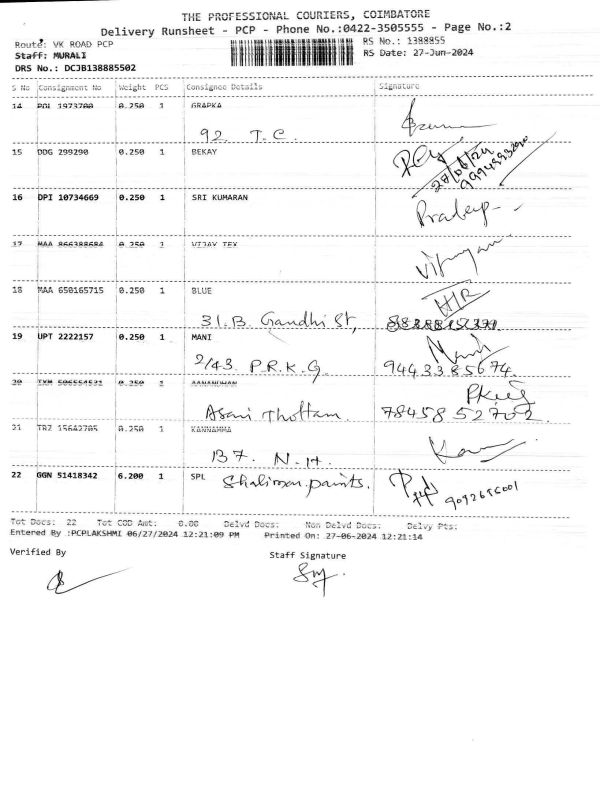 THE PROFESSIONAL COURIERS, COIMBATORE
Delivery Runsheet - PCP - Phone No.:0422-3505555 - Page No.:2
Route: VK ROAD PCP
RS No.: 1388855
Staff: MURALI
RS Date: 27-Jun-2024
DRS No.: DCJB138885502
S No Consignment No Weight PCS Consignee Details Signature
14 POL 1973700 0.250 1 GRAPKA
92 T.C.
15 DDG 299290 0.250 1 BEKAY
27/06/24
16 DPI 10734669 0.250 1 SRI KUMARAN
Pradeep
17 MAA 866388684 0.250 1 VIJAY TEX
18 MAA 650165715 0.250 1 BLUE
31.B. Gandhi St,
19 UPT 2222157 0.250 1 MANI
2/43 P.R.K.G. 9443385674.
20 0.250 AANANDHAN
Asari Thottam. 7845852702
21 TRZ 15642705 0.250 1 KANNAMMA
137. N.H.
22 GGN 51418342 6.200 1 SPL
Shaliman paints.
Tot Docs: 22 Tot COD Amt: 0.00 Delvd Docs: Non Delvd Docs: Delvy Pts:
Entered By :PCPLAKSHMI 06/27/2024 12:21:09 PM Printed On: 27-06-2024 12:21:14
Verified By
Staff Signature